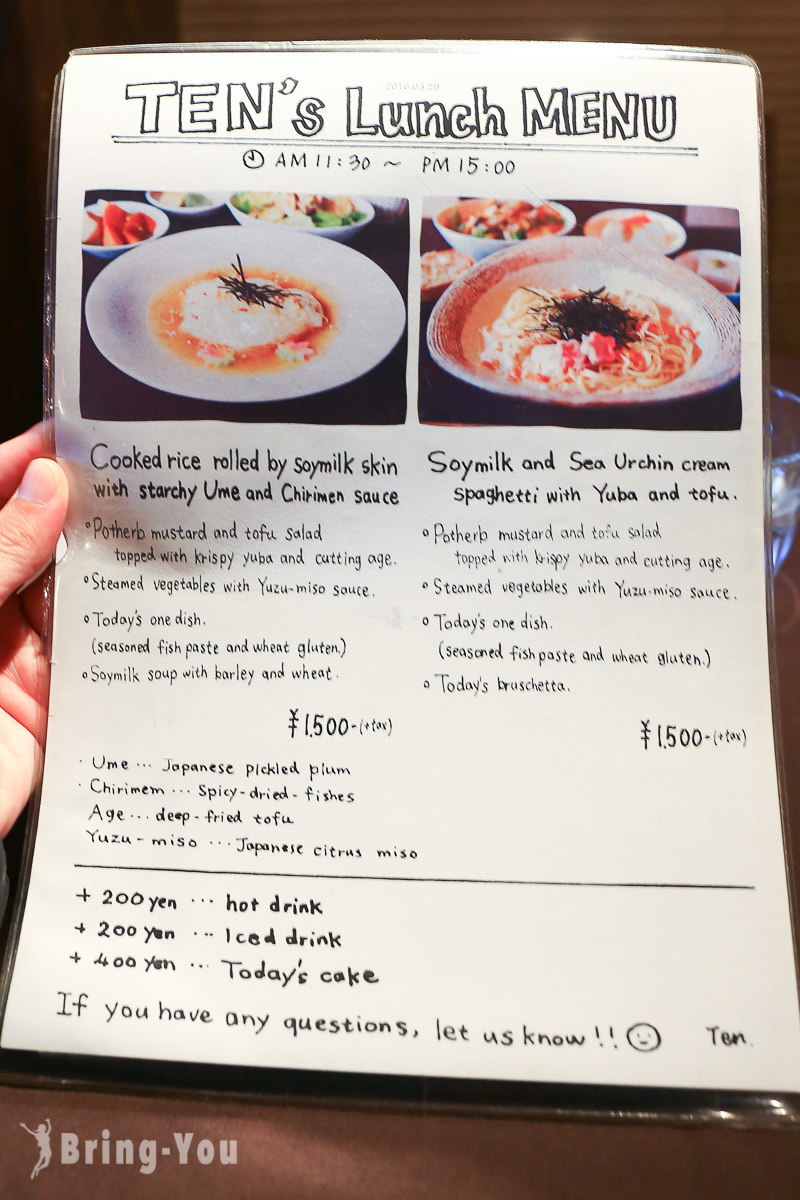 TEN's Lunch MENU
2016.03.29
AM 11:30 ~ PM 15:00
Cooked rice rolled by soymilk skin
with starchy Ume and Chirimen sauce
°Potherb mustard and tofu salad
topped with krispy yuba and cutting age.
°Steamed vegetables with Yuzu-miso sauce.
°Today's one dish.
(seasoned fish paste and wheat gluten.)
°Soymilk soup with barley and wheat.
¥1,500-(+tax)
Soymilk and Sea Urchin cream
spaghetti with Yuba and tofu.
°Potherb mustard and tofu salad
topped with krispy yuba and cutting age.
°Steamed vegetables with Yuzu-miso sauce.
°Today's one dish.
(seasoned fish paste and wheat gluten.)
°Today's bruschetta.
¥1,500-(+tax)
· Ume ... Japanese pickled plum
· Chirimem ... Spicy-dried-fishes
Age ... deep-fried tofu
Yuzu-miso ... Japanese citrus miso
+ 200 yen ... hot drink
+ 200 yen ... Iced drink
+ 400 yen ... Today's cake
If you have any questions, let us know!! Ten.
Bring-You